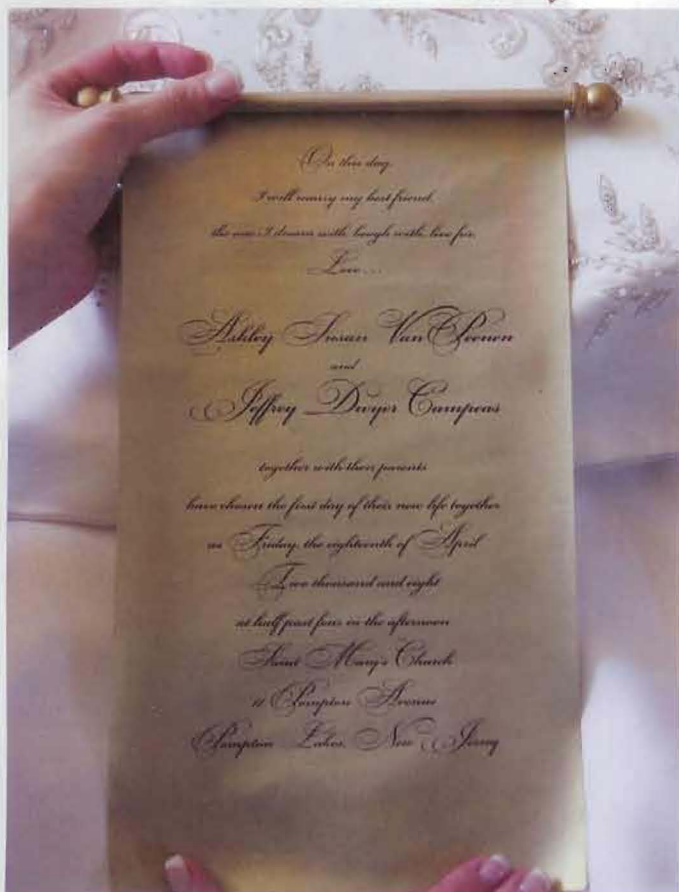 On this day
I will marry my best friend,
the one I dream with, laugh with, live for,
Love...
Ashley Susan Van
and
Jeffrey Dwyer Campeas
together with their parents
have chosen the first day of their new life together
as Friday, the eighteenth of April
Two thousand and eight
at half past four in the afternoon
Saint Mary's Church
Pompton Avenue
Pompton Lakes, New Jersey